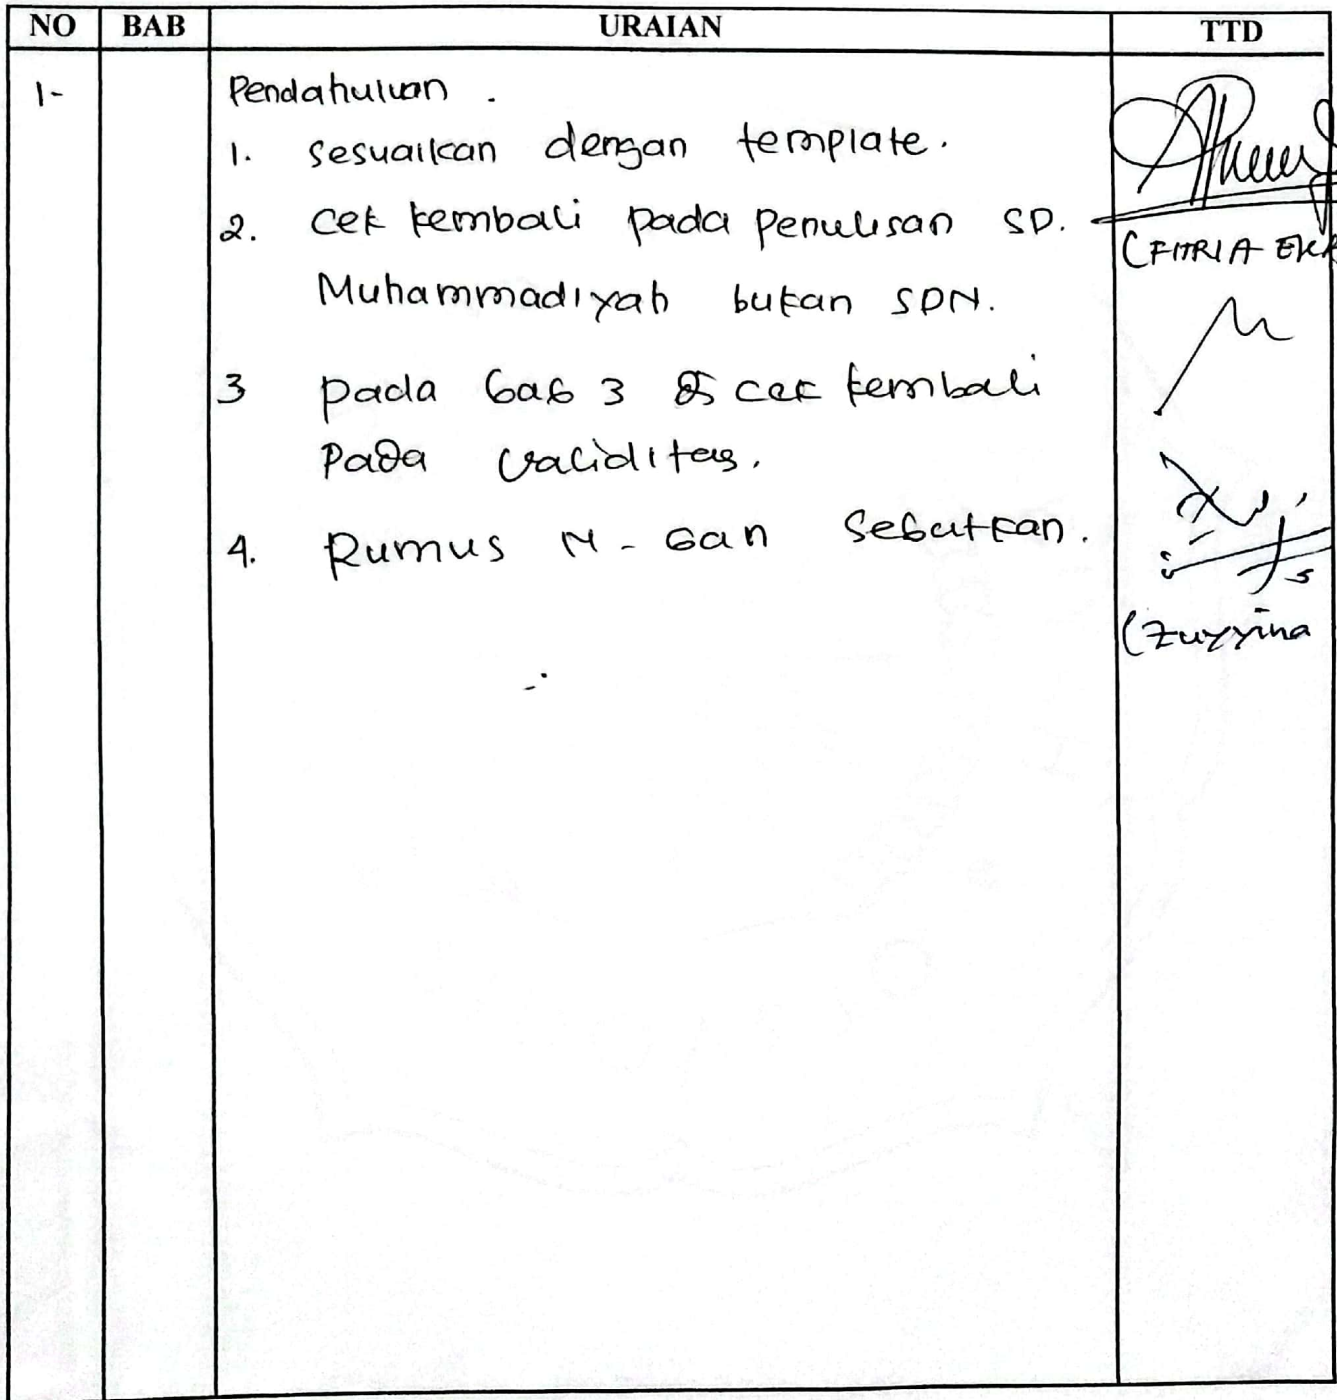 NO BAB URAIAN TTD
1- Pendahuluan .
1. sesuaikan dengan template.
2. cek kembali pada penulisan SD.
(FITRIA EKA
Muhammadiyah bukan SDN.
3 pada bab 3 cek kembali
pada validitas.
4. Rumus N - Gan sebutkan.
(Zuyyina